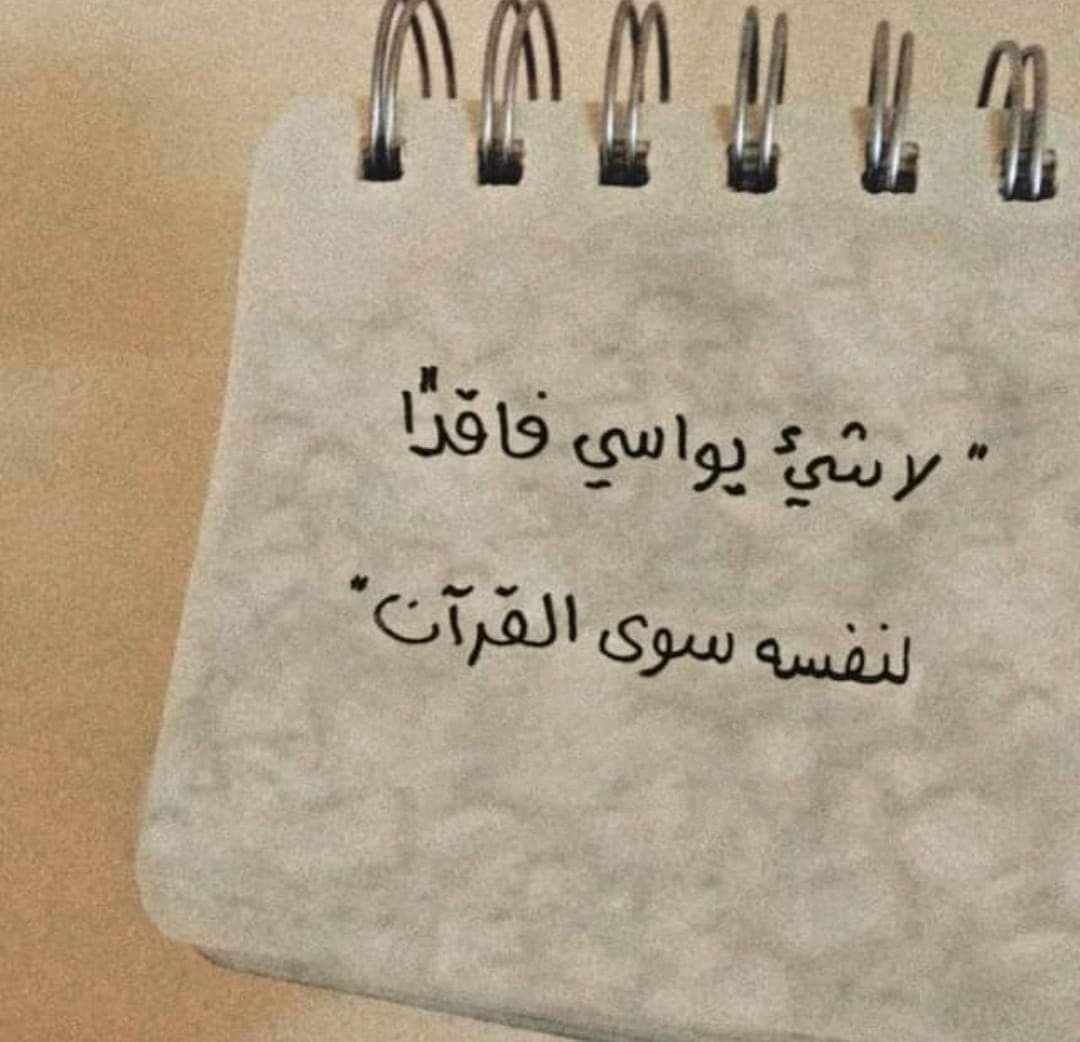 " لا شيئ يواسي فاقدًا
لنفسه سوى القرآن "